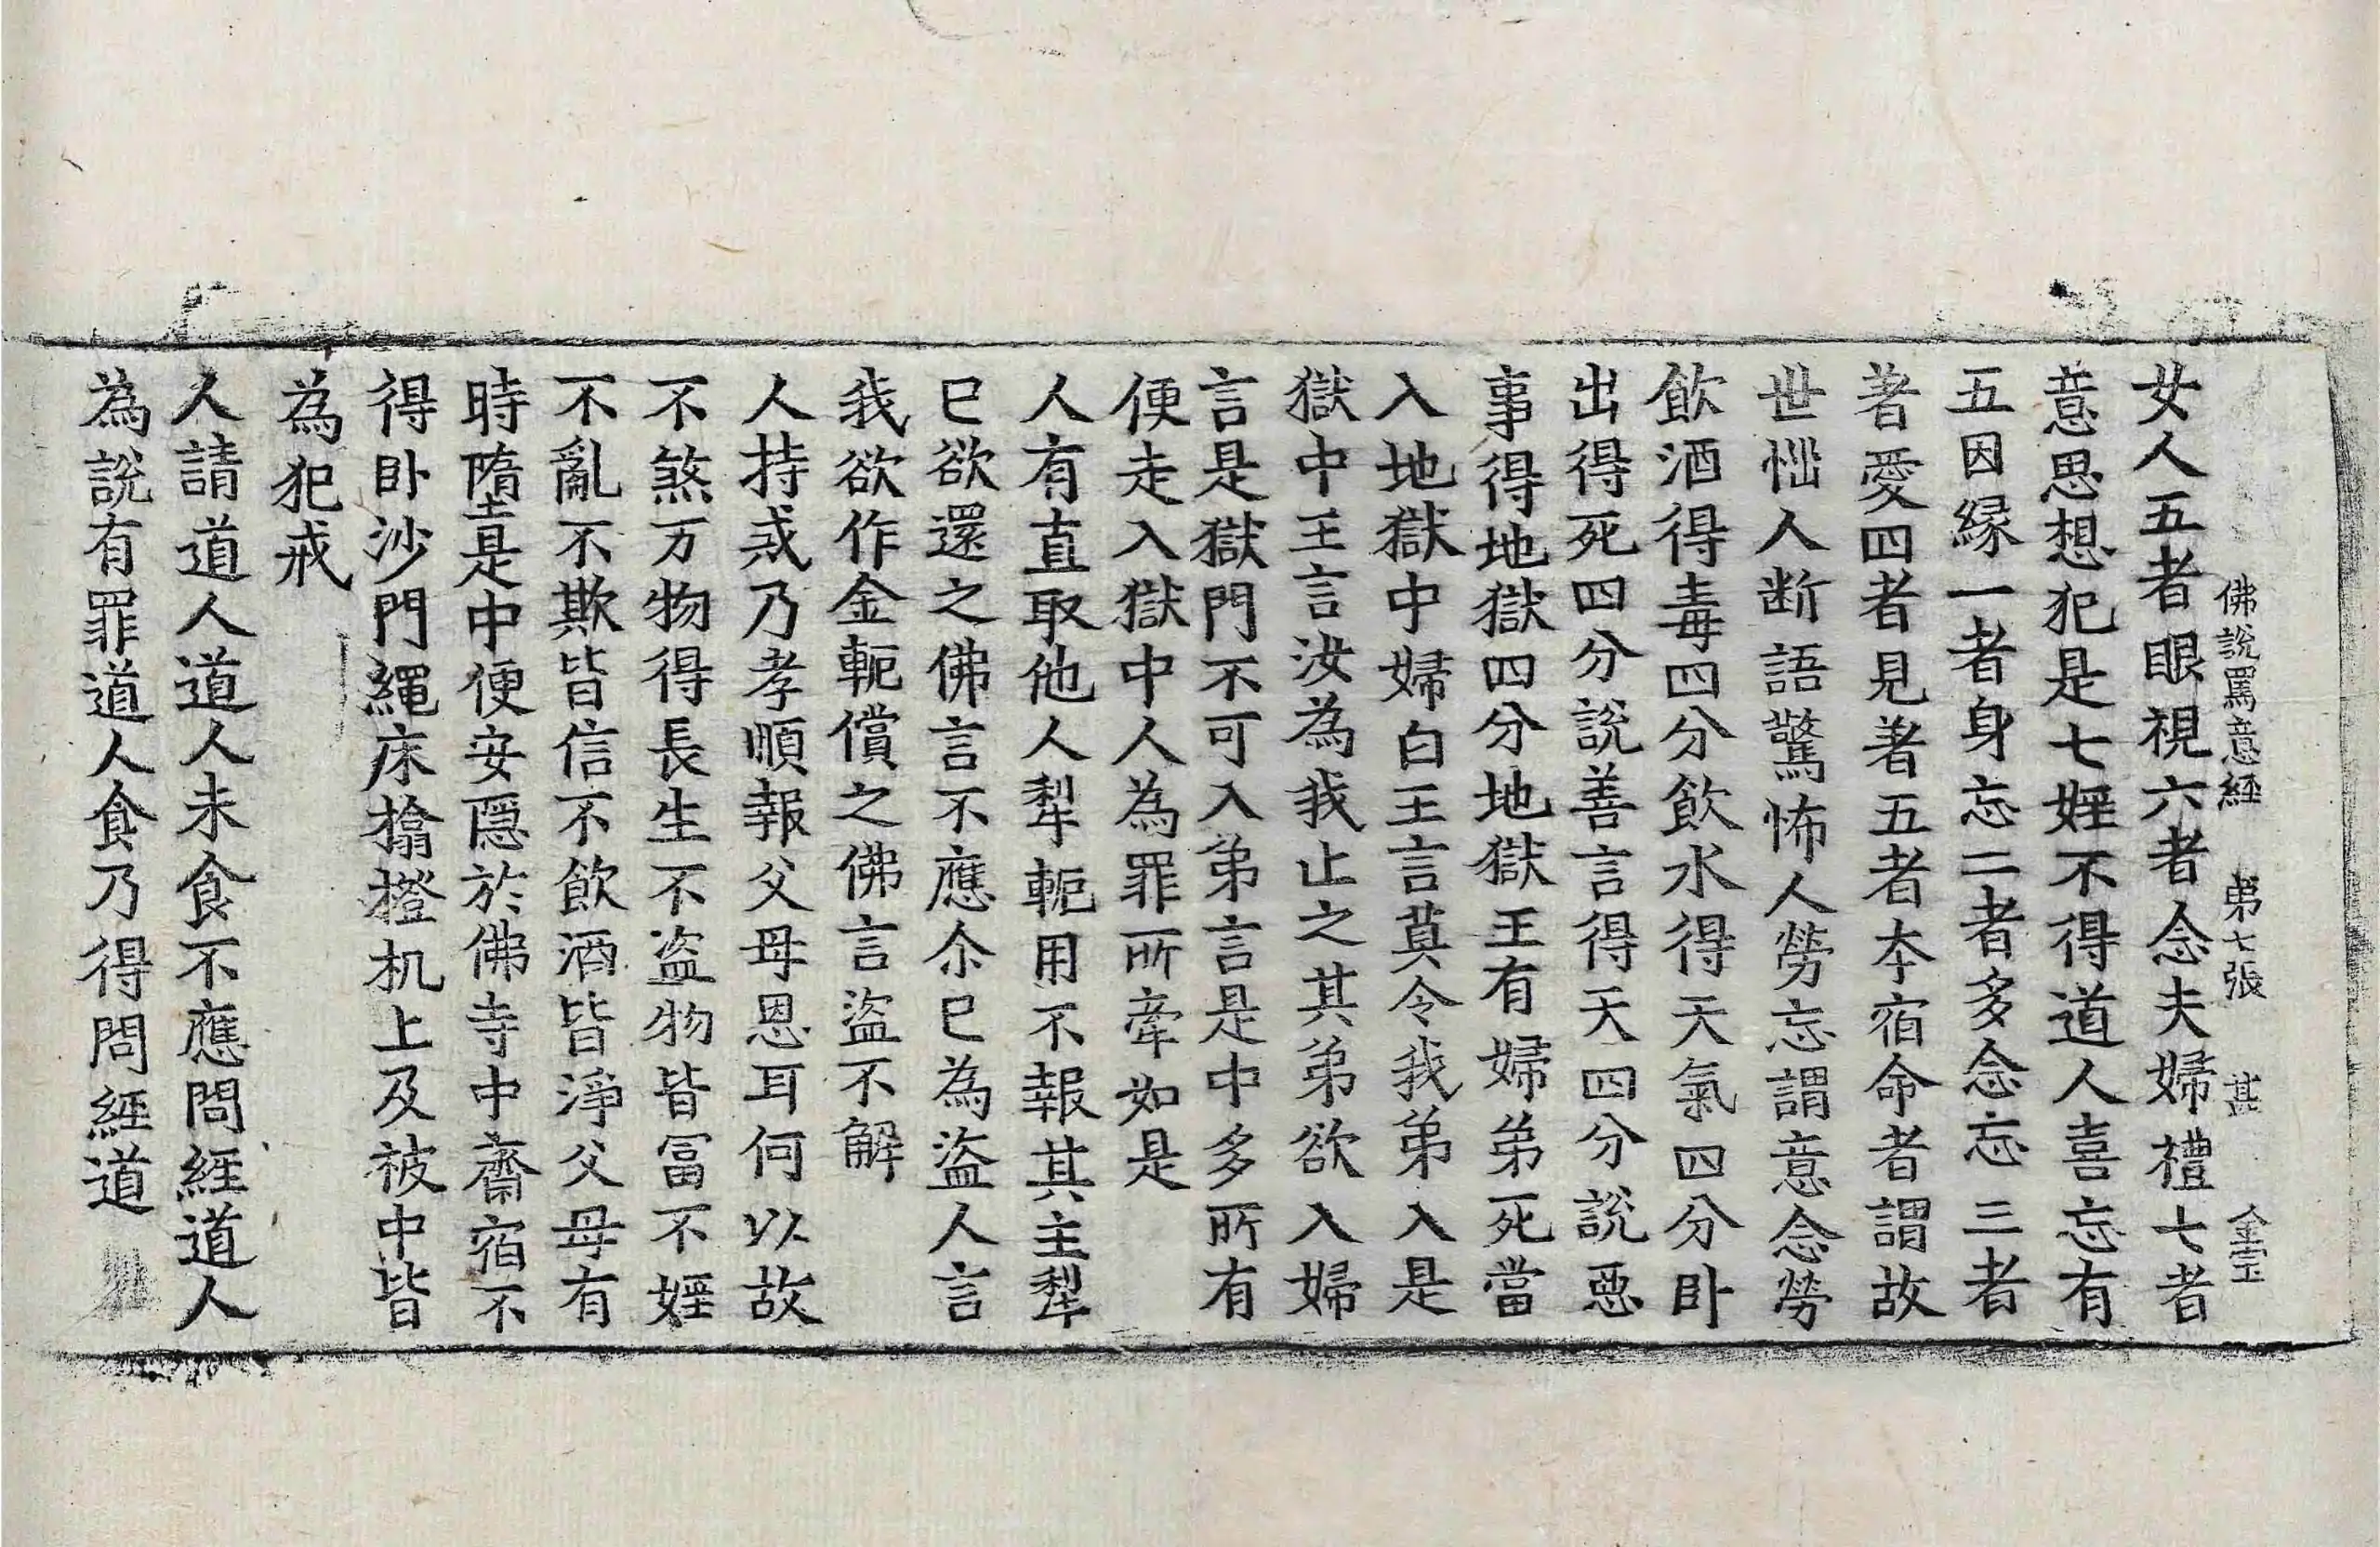 佛說罵意經 弟七張 甚 金玉
女人五者眼視六者念夫婦禮七者
意思想犯是七婬不得道人喜忘有
五因緣一者身忘二者多念忘三者
著愛四者見著五者本宿命者謂故
世㤼人断語驚怖人勞忘謂意念勞
飲酒得毒四分飲水得天氣四分卧
出得死四分說善言得天四分說惡
事得地獄四分地獄王有婦弟死當
入地獄中婦白王言莫令我弟入是
獄中王言汝為我止之其弟欲入婦
言是獄門不可入弟言是中多所有
便走入獄中人為罪所牽如是
人有直取他人犁軛用不報其主犁
已欲還之佛言不應尒已為盜人言
我欲作金軛償之佛言盜不解
人持戒乃孝順報父母恩耳何以故
不煞万物得長生不盜物皆冨不婬
不亂不欺皆信不飲酒皆淨父母有
時墮是中便安隱於佛寺中齋宿不
得卧沙門繩床㩉橙机上及被中皆
為犯戒
人請道人道人未食不應問經道人
為說有罪道人食乃得問經道